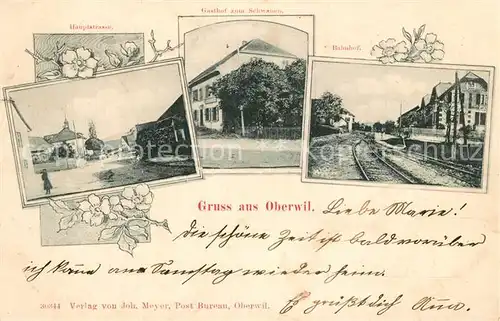 Gasthof zum Schwanen.
Hauptstrasse.
Bahnhof.
Gruss aus Oberwil.
Liebe Marie!
Die schöne Zeit ist bald vorüber
ich kome am Samstag wieder heim.
Es grüßt dich
36344 Verlag von Joh. Meyer, Post Bureau, Oberwil.